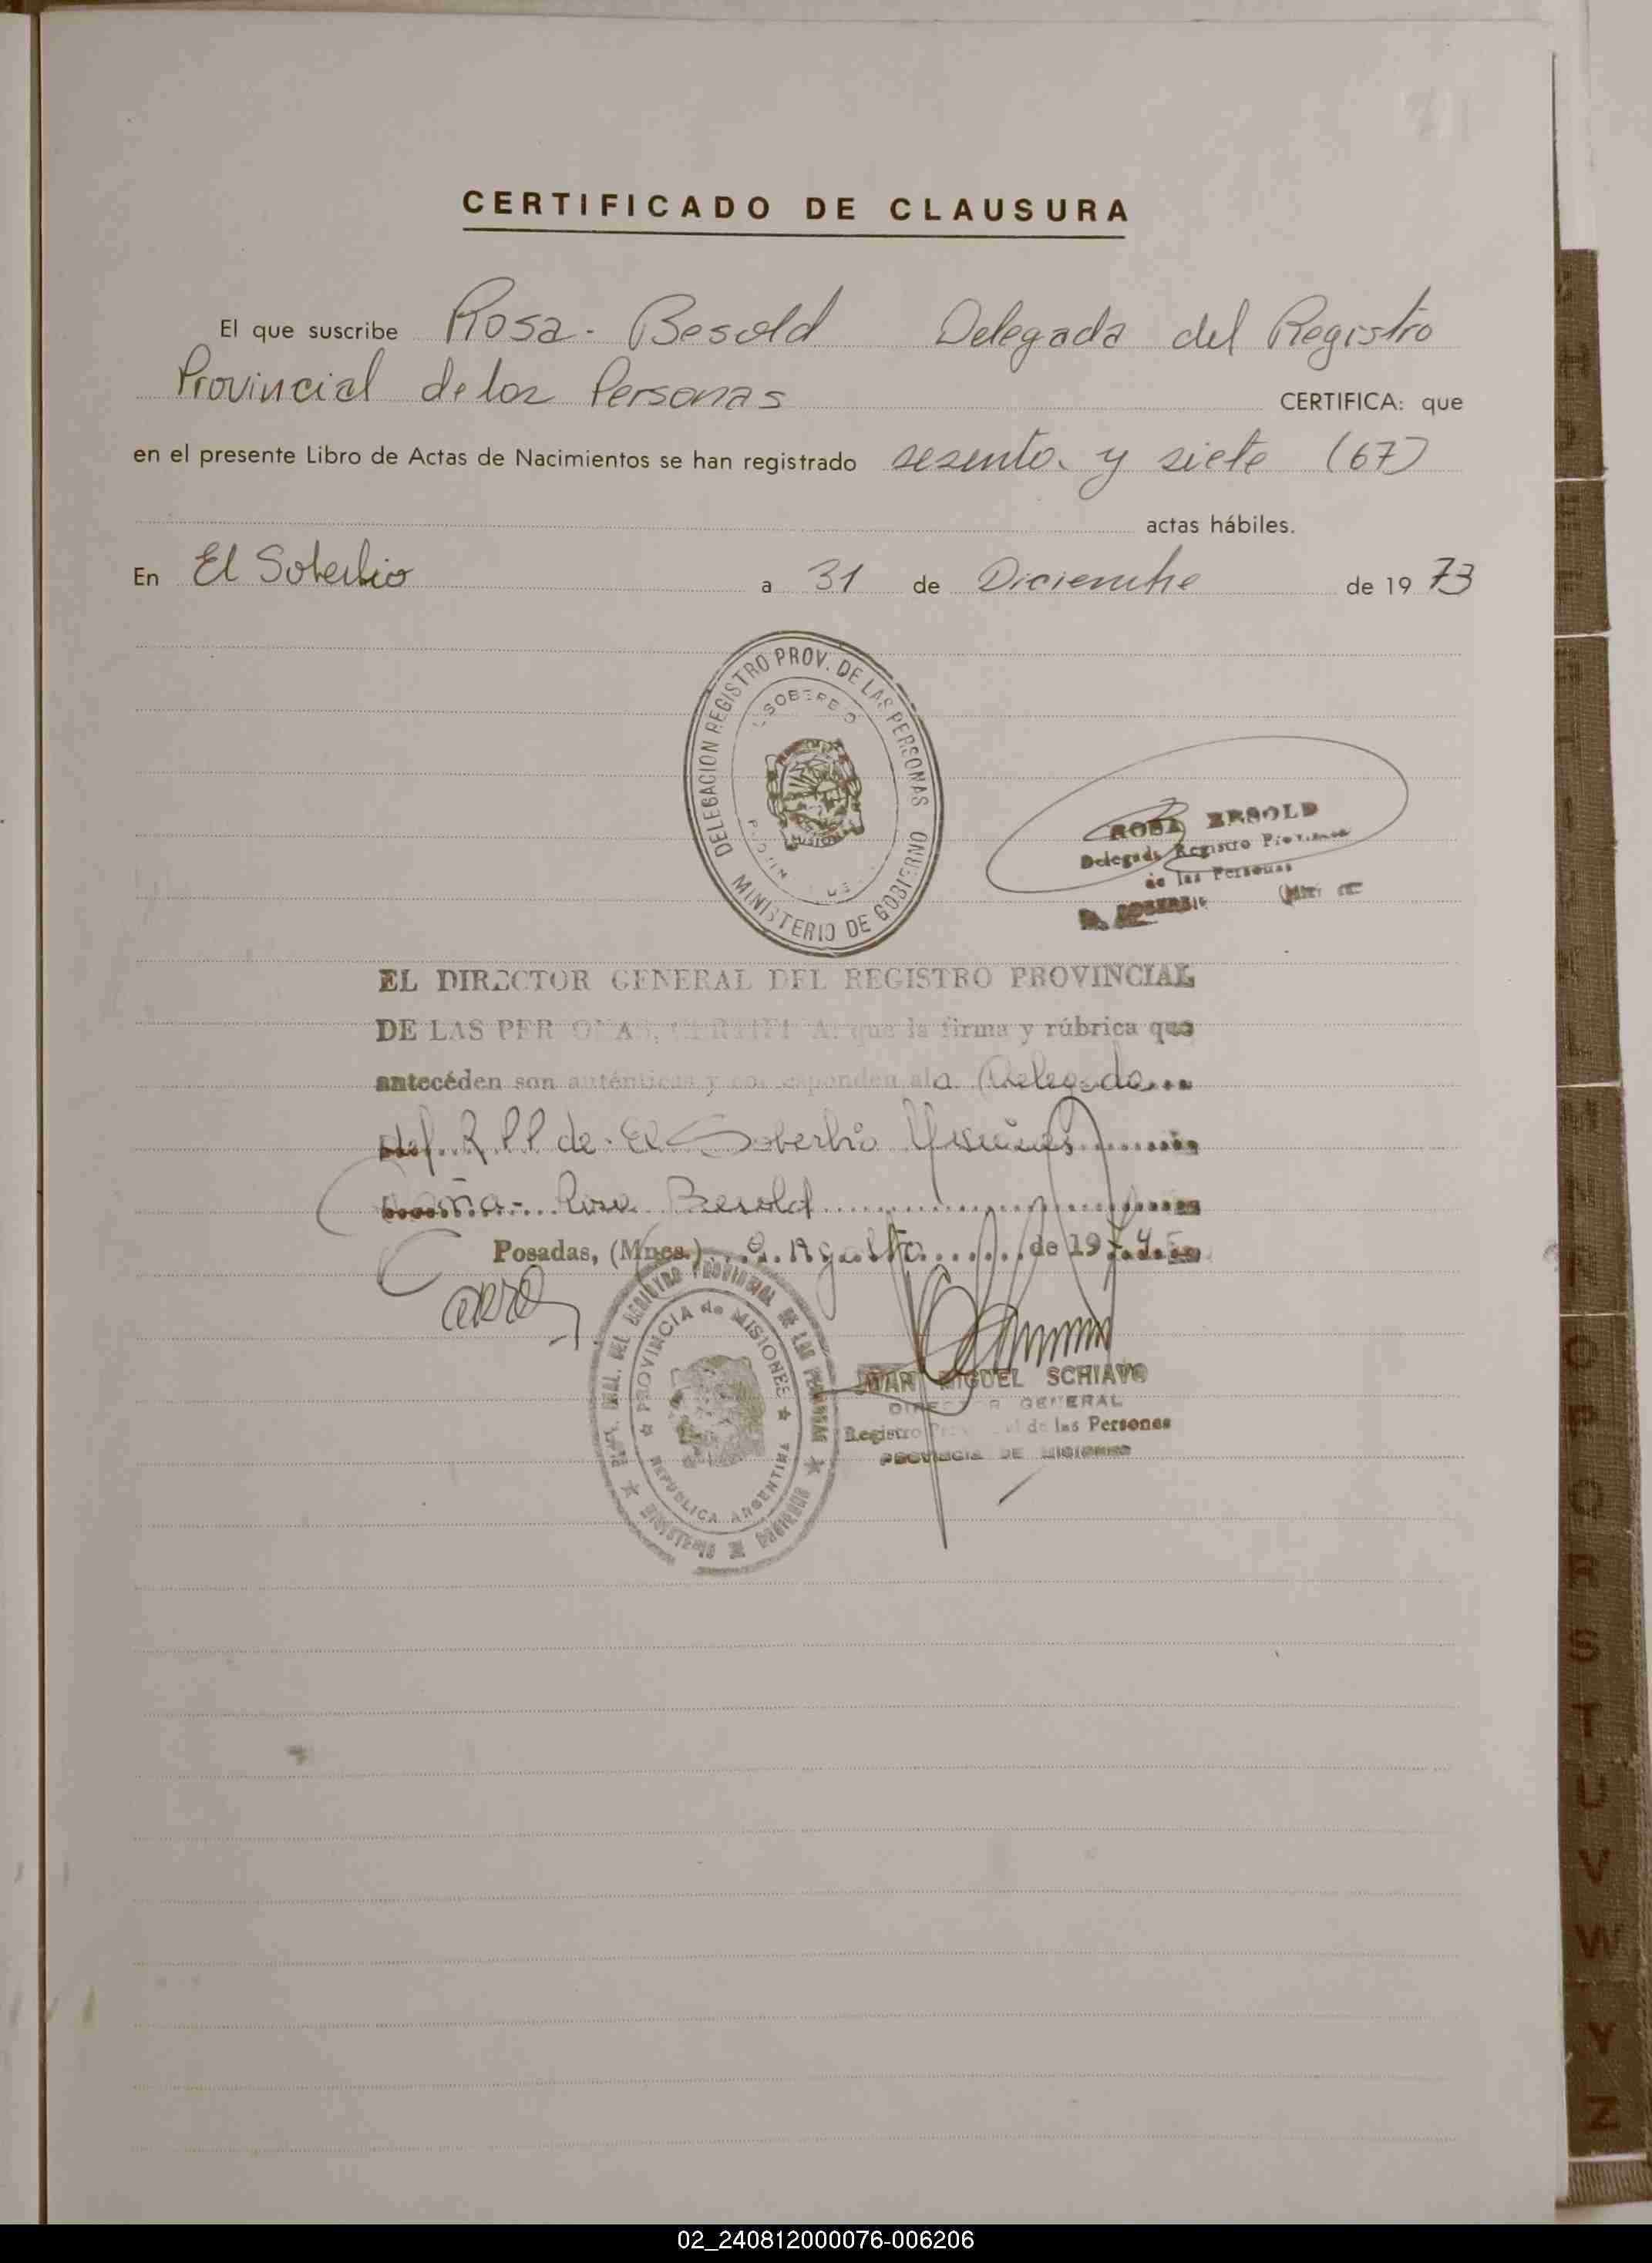 CERTIFICADO DE CLAUSURA
El que suscribe Rosa Besold Delegada del Registro
Provincial de las Personas CERTIFICA: que
en el presente Libro de Actas de Nacimientos se han registrado sesenta y siete (67)
actas hábiles.
En El Soberbio a 31 de Diciembre de 1973
DELEGACION REGISTRO PROV. DE LAS PERSONAS
MINISTERIO DE GOBIERNO
ROSA BESOLD
Delegada Registro Provincial
de las Personas
EL SOBERBIO
EL DIRECTOR GENERAL DEL REGISTRO PROVINCIAL
DE LAS PERSONAS, CERTIFICA: que la firma y rúbrica que
antecéden son auténticas y corresponden a la Delegada
del R.P.P. de El Soberbio Misiones
Doña Rosa Besold
Posadas, (Mnes.) Agosto de 197
PROVINCIA de MISIONES
REPUBLICA ARGENTINA
MIGUEL SCHIAVO
DIRECTOR GENERAL
Registro Provincial de las Personas
PROVINCIA DE MISIONES
O
P
Q
R
S
T
U
V
W
Y
Z
02_240812000076-006206